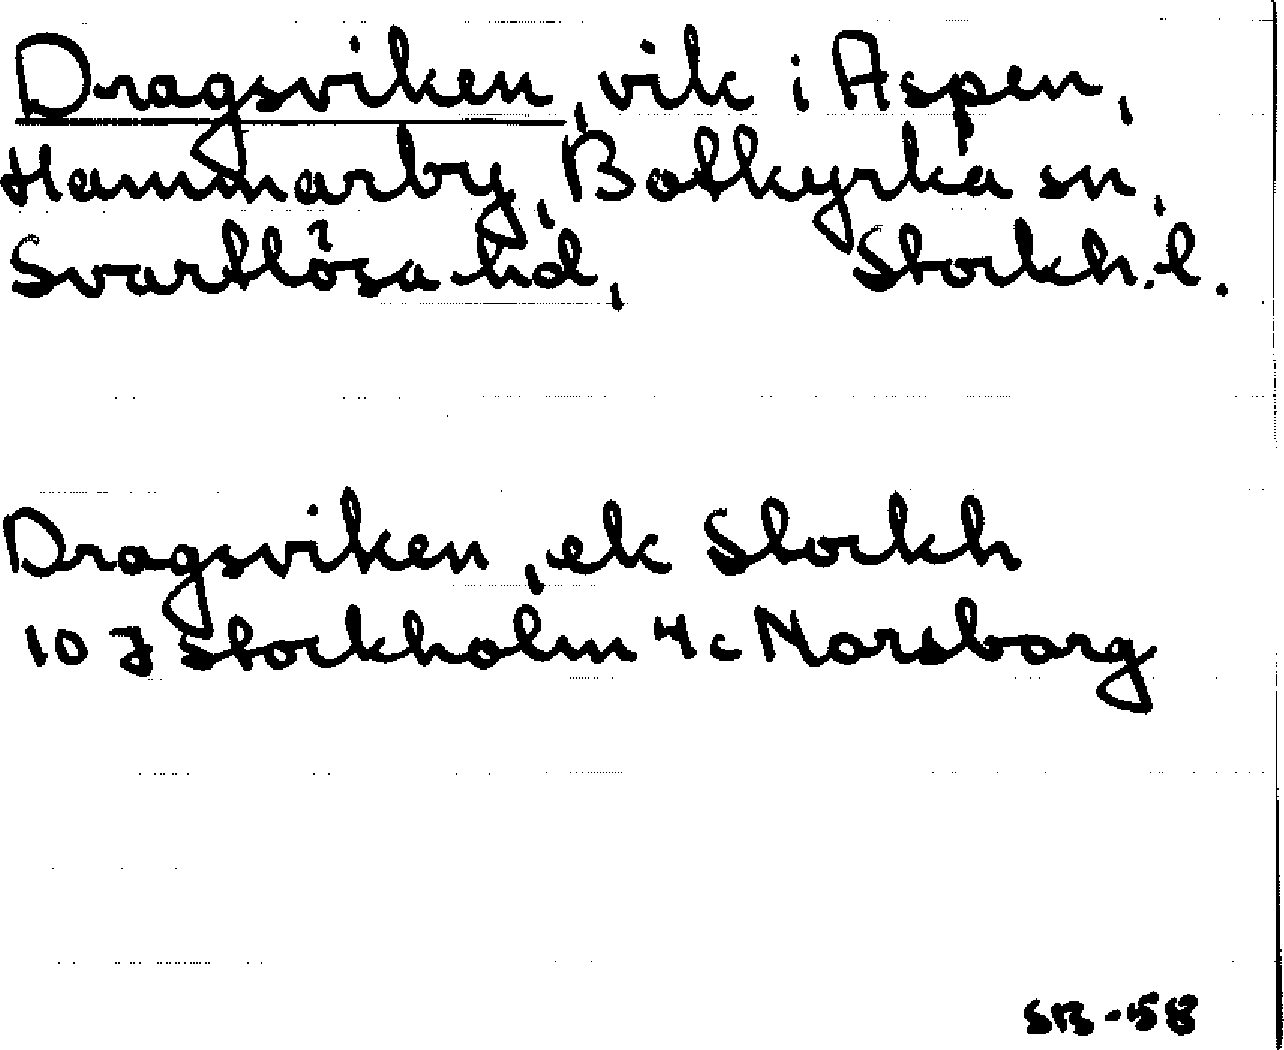 Dragsviken, vik i Aspen,
Hammarby, Botkyrka sn,
Svartlösa hd, Stockh. l.
Dragsviken, ek Stockh
10 J Stockholm 4c Norsborg
SB-58